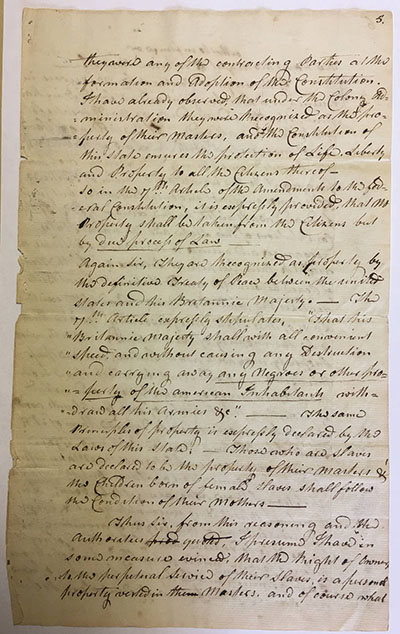 5.
they were any of the contracting Parties at the
formation and Adoption of the Constitution.
I have already observed, that under the Colony Ad-
-ministration they were Recognized as the pro-
-perty of their Masters, and the Constitution of
this State ensures the protection of Life Liberty
and Property to all the Citizens thereof—
So in the 7th Article of the Amendments to the Fed-
-eral Constitution, it is expressly provided, that no
Property shall be taken from the Citizens but
by due process of Law—
Again Sir, They are Recognized as property by
the definitive Treaty of Peace between the united
States and his Britannic Majesty.— The
7th Article expressly stipulates, "That his
"Britannic Majesty shall with all convenient
"Speed, and without causing any Destruction
"and carrying away any Negroes or other pro-
"-perty of the american Inhabitants with-
"draw all his Armies &c."— The same
Principles of property is expressly declared by the
Laws of this State!— Those who are Slaves
are declared to be the property of their Masters &
the Children born of female Slaves shall follow
the Condition of their Mothers—
Thus Sir, from this reasoning and the
Authorities quoted, I presume I have in
some measure evinced, that the Right of Owners
to the perpetual Service of their Slaves, is a personal
property vested in Masters, and of course what